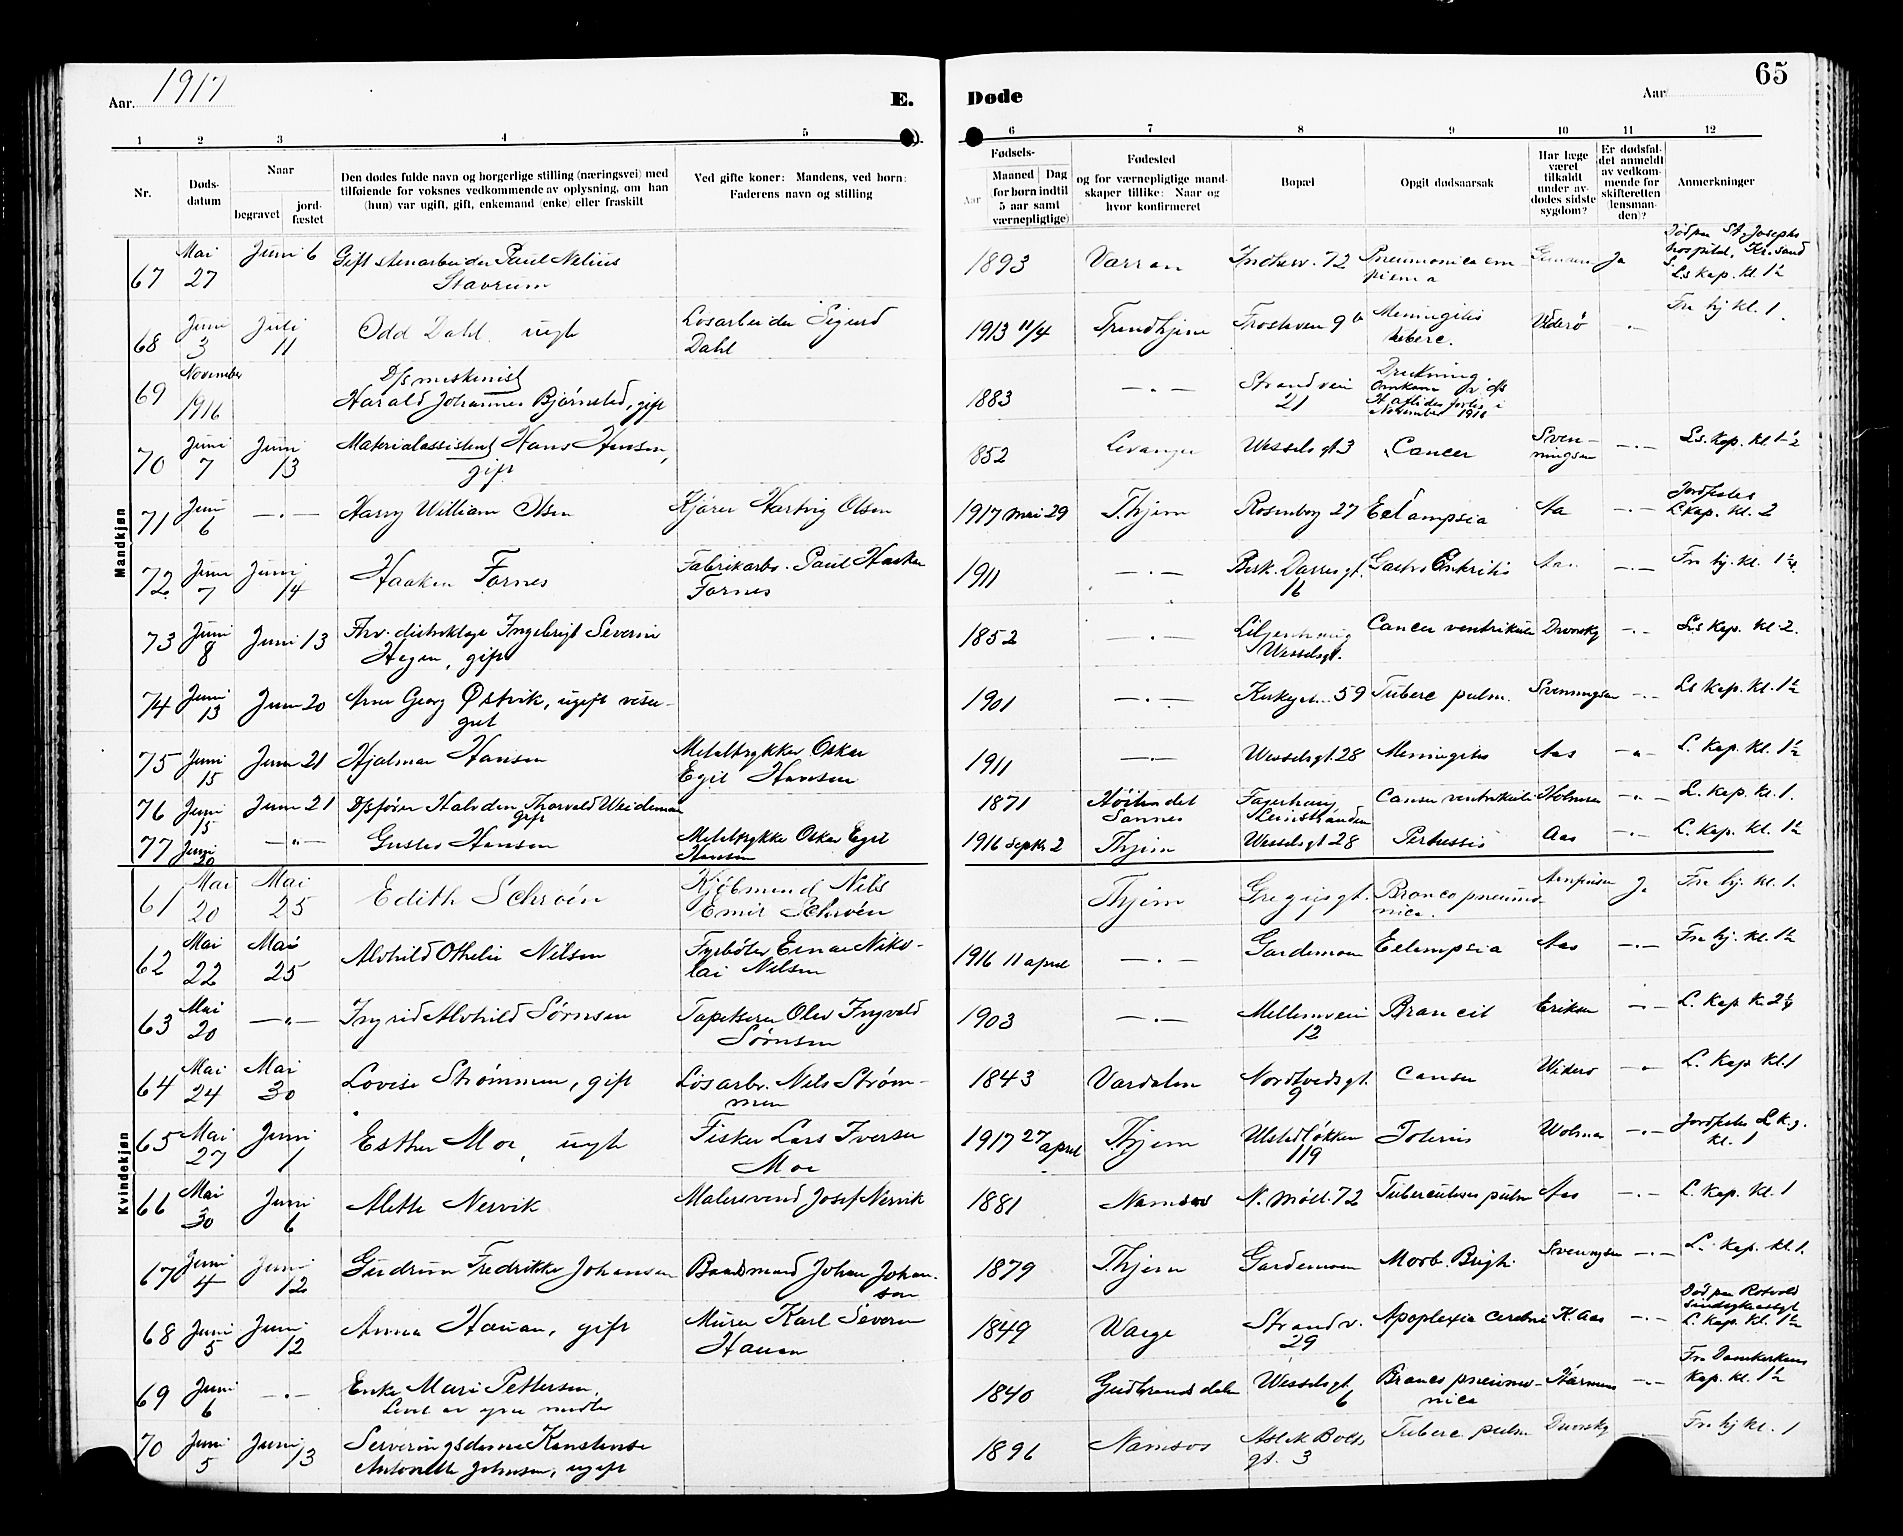 Aar. 1917
E. Døde
Aar
65
1 2 3 4 5 6 7 8 9 10 11 12
Nr.
Døds-
datum
Naar
begravet
jord-
fæstet
Den dødes fulde navn og borgerlige stilling (næringsvei) med
tilføiende for voksnes vedkommende av oplysning, om han
(hun) var ugift, gift, enkemand (enke) eller fraskilt
Ved gifte koner: Mandens, ved børn:
Faderens navn og stilling
Fødsels-
Aar
Maaned
Dag
(for børn indtil
5 aar samt
værnepligtige)
Fødested
og for værnepligtige mand-
skaper tillike: Naar og
hvor konfirmeret
Bopæl
Opgit dødsaarsak
Har læge
været
tilkaldt
under av-
dødes sidste
sygdom?
Er dødsfal-
det anmeldt
av vedkom-
mende for
skifteretten
(lensman-
den)?
Anmerkninger
Mandkjøn
67 Mai 27 Juni 6 Gift stenarbeider Paul Nelius
Stavrum
1893 Værran Indherv. 72 Pneumonica em-
piema
Ja
Død paa St. Josephs
hospital, Kr.sand
S.
Ls kap. kl. 1½
68 Juni 3 Juli 11 Odd Dahl ugft Løsarbeider Sigurd
Dahl
1913 11/4 Trondhjem Frostaven 9 b Meningitis
tuberc.
Viderø -"- Fra hj kl. 1.
69 November 1916 D/s maskinist
Harald Johannes Bjørnstad, gift
1883 -"- Strandvei
21
Drukning
Omkom
November 1916
70 Juni 7 Juni 13 Materialassistent Hans Hansen,
gift
852 Levanger Wesselsgt 3 Cancer Sven-
ningsen
-"- Ls. kap. kl. 1½
71 Juni 6 -"- Harry William Olsen Kjører Hartvig Olsen
1917 Mai 29 T.hjem Rosenborg 27 Eclampsia Aa -"- Jordfestes
L kap. kl. 2
72 Juni 7 Juni 14 Haakon Fornes Fabrikarb. Paul Haakon
Fornes
1911 -"- Bisk. Darresgt.
16
Gastro Enteritis Aas -"- Fra hj. kl. 1½
73 Juni 8 Juni 13 Frv. distriktslæge Ingebrigt Severin
Hagen, gift
1852 -"-
Wesselsgt.
Cancer ventrikuli -"- Ls kap. kl. 2.
74 Juni 13 Juni 20 Arne Georg Østvik, ugift viser-
gut
1901 -"- Kirkegt. 59 Tuberc pulm. Svenningsen -"- Ls kap. kl. 1½
75 Juni 15 Juni 21 Hjalmar Hansen Metaltrykker Oskar
Egil Hansen
1911 -"- Wesselsgt. 28 Meningitis Aas -"- L. kap. kl. 1½
76 Juni 15 Juni 21 D/sfører Halvdan Thorvald Weideman
gift
1871
Cancer ventrikuli Holmsen -"- L. kap. kl. 1.
77 Juni 20 -"- Gustav Hansen Metaltrykker Oskar Egil
Hansen
1916 Septbr 2 Thjem Wesselsgt 28 Pertussis Aas -"- L. kap. kl. 1½
Kvindekjøn
61 Mai 20 Mai 25 Edith Schrøén Kjøbmand Nils
Emil Schrøén
Thjem Gregusgt.
1
Broncopneumo-
nica.
Ja Fra hj. kl. 1.
62 Mai 22 Mai 25 Alvhild Othelie Nilsen Fyrbøter Einar Niko-
lai Nilsen
1916 11 april -"- Gardemoen Eclampsia Aas -"- Fra hj. kl. 1½
63 Mai 20 -"- Ingrid Alvhild Sørnsen Tapetserer Olav Ingvald
Sørnsen
1903 -"- Mellemveien
12
Broncit Eriksen -"- L. kap k. 2½
64 Mai 24 Mai 30 Lovise Strømmen, gift Løsarbr. Nils Strøm-
men
1843 Værdalen Nordtvedsgt.
9
Cancer Widerø -"- L. kap kl. 1
65 Mai 27 Juni 1 Esther Moe, ugft Fisker Lars Iversen
Moe
1917 27 april Thjem Ulstedløkken
119
-"- Jordfestes
kl. 1
66 Mai 30 Juni 6 Alette Nervik Malersvend Josef Nervik
1881 Namsos N. Møll. 72 Tuberculose pulm Aas -"- L. kap. kl. 1
67 Juni 4 Juni 12 Gudrun Fredrikke Johansen Baadsmand Johan Johan-
sen
1879 Thjem Gardemoen Morb. Brigti Svenningsen -"- L. kap. kl. 1.
68 Juni 5 Juni 12 Anna Hauan, gift Murer Karl Severin
Hauan
1849 Strandv.
29
Apoplexia cerebri K. Aas -"- Død paa Rotvold
sindsykeasyl
L. kap. kl. 1½
69 Juni 6 -"- Enke Mari Pettersen.
Levet av egne midler
1840 Gudbrandsdalen Wesselsgt.
6
Broncopneumo-
nica
-"- Fra Domkirkens
kap. kl. 1½
70 Juni 5 Juni 13 Serveringsdame Konstanse
Antonette Johnsen, ugift
1896 Namsos Aslak Bolts
gt. 3
Tuberc. pulm Fra hj kl. 1